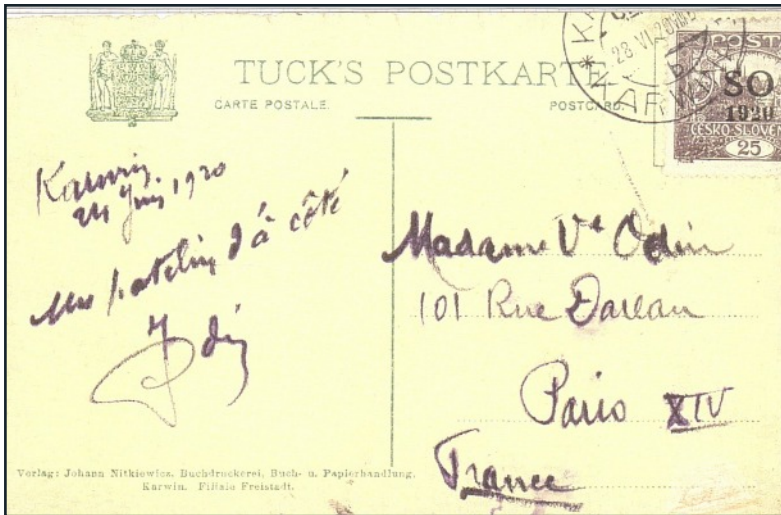 TUCK'S POSTKARTE
CARTE POSTALE.
POSTCARD.
28.VI.20
KARWI
POST
SO
1920
ČESKO-SLOVE
25
Karwin
24 Juin 1920
patelin d'à côté
Madame Vve Odin
101 Rue Dareau
Paris XIV
France
Verlag: Johann Nitkiewicz, Buchdruckerei, Buch- u. Papierhandlung.
Karwin. Filiale Freistadt.